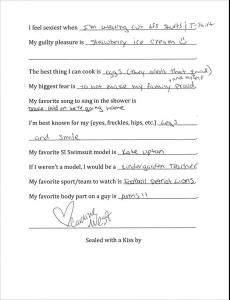 I feel sexiest when I'm wearing cut off shorts / T-Shirt
My guilty pleasure is Strawberry ice cream
The best thing I can cook is eggs (they aren't that good)
My biggest fear is to not make my family and myself proud.
My favorite song to sing in the shower is
hold on we're going home
I'm best known for my (eyes, freckles, hips, etc.) Legs
and smile
My favorite SI Swimsuit model is Kate Upton
If I weren't a model, I would be a kindergarden Teacher
My favorite sport/team to watch is Football Detroit Lions.
My favorite body part on a guy is Arms!!
Sealed with a Kiss by